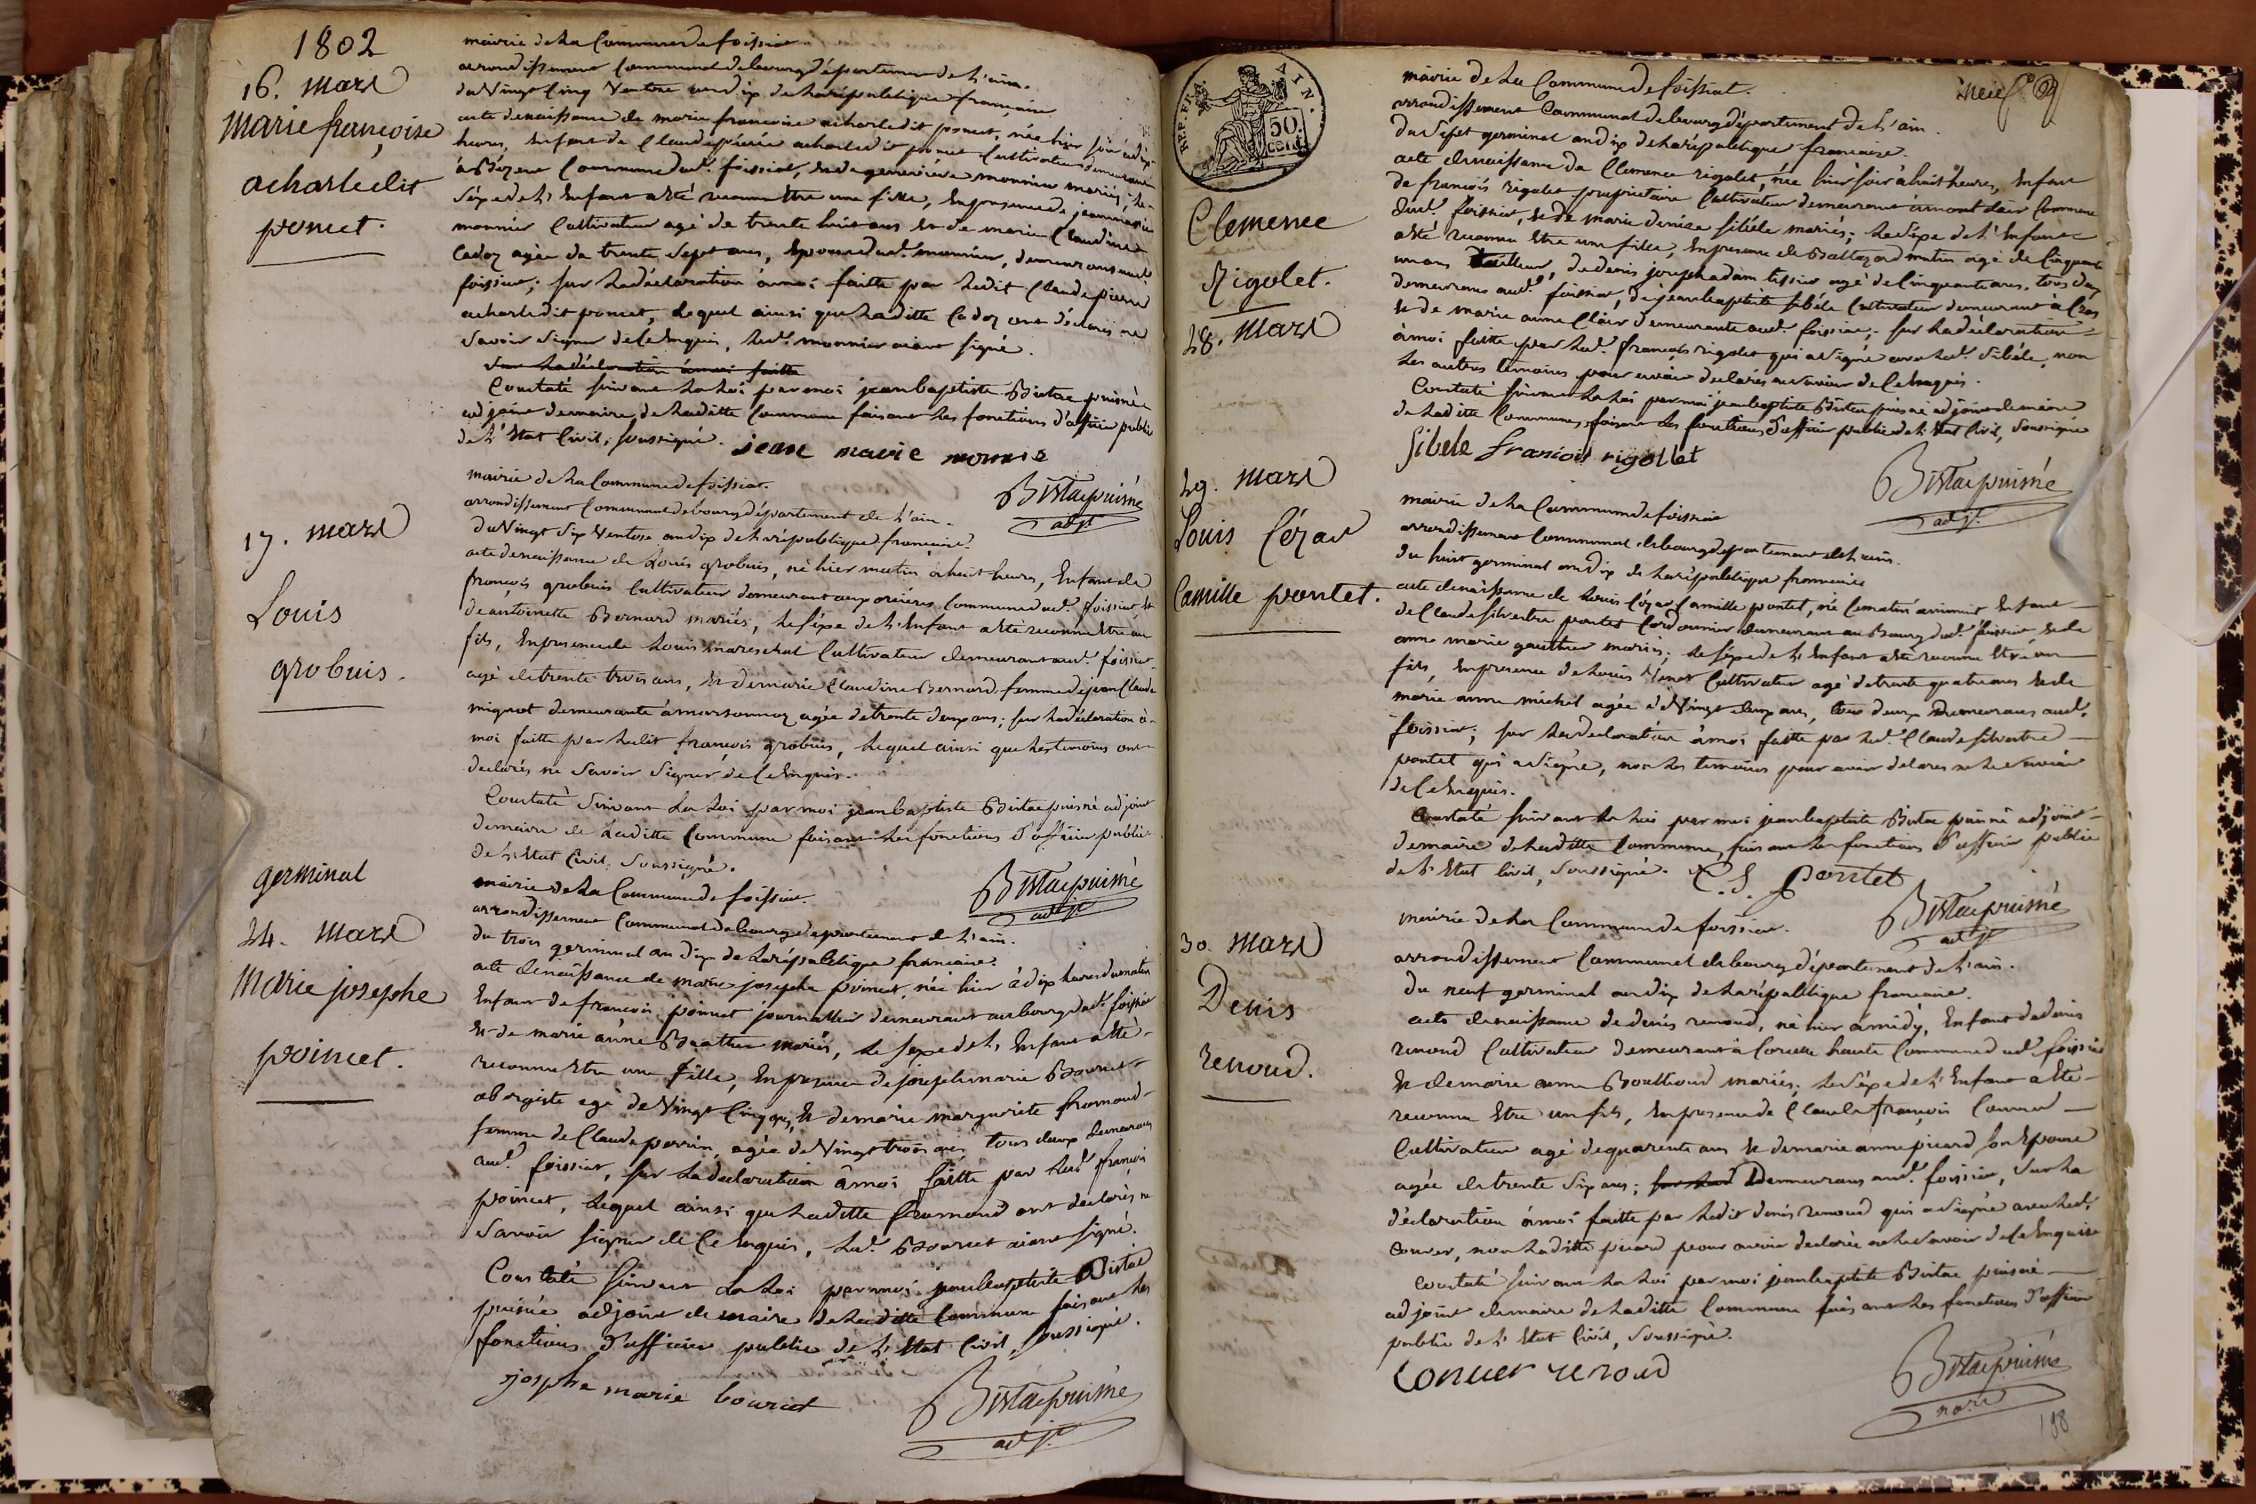 1802
16. mars
Marie françoise
acharledit
poncet.
mairie de la Commune de foissiat
arrondissement Communal de bourg département de l'ain.
du Vingt Cinq Ventose an dix de la républetique française
acte de naissance de marie francoise acharledit poncet, née hier soir à dix
heures, Enfant de Claude pierre acharledit poncet Cultivateur demeurant
à Commune dud. foissiat, et de genevieve monnier mariés, le
séxe de L'Enfant a été reconnu Etre une fille, En presence de jean marie
monnier Cultivateur agé de trente huit ans et de marie Claudine
Cadoz agée de trente sept ans, Epouse dud. monnier, demeurans aud.
foissiat; sur la déclaration à moi faitte par Ledit Claude pierre
acharledit poncet, Lequel ainsi que Laditte Cadoz ont déclarés ne
Savoir Signer de Ce Enquis, Led. monnier aiant signé.
Sur La déclaration à moi faitte
Constaté suivant La Loi par moi jean baptiste Bistac puisnè
adjoint de maire de Laditte Commune faisant Les fonctions d'officier public
de L'Etat Civil, soussigné. jean marie monnie
Bistac puisné
adjt.
17. mars
Louis
grobuis.
mairie de La Commune de foissiat.
arrondissement Communal de bourg département de L'ain.
du Vingt Six Ventose an dix de La républetique française.
acte de naissance de Louis grobuis, né hier matin à huit heures, Enfant de
françois grobuis Cultivateur demeurant aux Commune dud. foissiat, et
de antoinette Bernard mariés, Le séxe de L'Enfant a été reconnu Etre un
fils, En presence de Louis mareschal Cultivateur demeurant aud. foissiat
agé de trente trois ans, et de marie Claudine Bernard femme de jean Claude
mignot demeurante à marsonnaz agée de trente deux ans; sur La déclaration à
moi faitte par Ledit françois grobuis, Lequel ainsi que Les temoins ont
declarés ne Savoir Signer de Ce Enquis.
Constaté Suivant La Loi par moi jean baptiste Bistac puisné adjoint
de maire de Laditte Commune faisant Les fonctions d'officier public
de L'Etat Civil, Soussigné.
Bistac puisné
adjt
germinal
24. mars
Marie josephe
poincet.
mairie de La Commune de foissiat.
arrondissement Communal de bourg département de L'ain.
du trois germinal an dix de La républetique française.
acte de naissance de marie josephe poincet, née hier à dix heures du matin
Enfant de françois poincet journallier demeurant au bourg dud. foissiat
et de marie anne mariés, Le sexe de L'Enfant a été
reconnu Etre une fille, En presence de joseph marie Bouriet
agé de Vingt Cinq ans, et de marie marguerite fromond
femme de Claude perrin, agée de Vingt trois ans tous deux demeurans
aud. foissiat, sur La declaration à moi faitte par Led. françois
poincet, Lequel ainsi que Laditte fromond ont declarés ne
Savoir signer de Ce Enquis, Led. Bouriet aiant signé.
Constaté suivant La Loi par moi jean baptiste Bistac
puisné adjoint de maire de Laditte Commune faisant Les
fonctions d'officier public de L'Etat Civil, Soussigné.
josphe marie bouriet
Bistac puisné
adjt.
REP. FRA.
AIN.
50.
CENT.
Clemence
Rigolet.
28. mars
mairie de La Commune de foissiat.
arrondissement Communal de bourg département de L'ain.
du Sept germinal an dix de La républetique française.
acte de naissance de Clemence rigolet, née hier soir à huit heures, Enfant
de françois rigolet proprietaire Cultivateur demeurant à Commune
dud. foissiat, et de marie denise sibéle mariés; Le Séxe de L'Enfant
a été reconnu Etre une fille, En presence de Baltazard matin agé de Cinquante
un ans tailleur, de denis joseph adam tissier agé de Cinquante ans, tous deux
demeurans aud. foissiat, de jean baptiste sibéle Cultivateur demeurant à Cras
et de marie anne Clair demeurante aud. foissiat; sur La déclaration
à moi faitte par Led. françois rigolet qui a Signé avec Led. Sibéle, non
Les autres temoins pour avoir declarés ne Savoir de Ce Enquis.
Constaté suivant La Loi par moi jean baptiste Bistac puisné adjoint de maire
de Laditte Commune, faisant Les fonctions d'officier public de L'Etat Civil, Soussigné
Sibele francois rigollet
Bistac puisné
adjt.
29. mars
Louis Cézar
Camille pontet.
mairie de La Commune de foissiat
arrondissement Communal de bourg département de L'ain.
du huit germinal an dix de La républetique française
acte de naissance de Louis Cézar Camille pontet, né Ce matin à Enfant
de Claude silvestre pontet Cordonnier demeurant au Bourg dud. foissiat, et de
anne marie gauthier mariés; Le séxe de L'Enfant a été reconnu Etre un
fils, En presence de Louis Cultivateur agé de trente quatre ans et de
marie anne michel agée de Vingt deux ans, tous deux demeurans aud.
foissiat; sur La declaration à moi faitte par Led. Claude silvestre
pontet qui a Signé, non Les temoins pour avoir déclarés ne Le Savoir
de Ce Enquis.
Constaté suivant La Loi par moi jean baptiste Bistac puisné adjoint
de maire de Laditte Commune, faisant Les fonctions d'officier public
de L'Etat Civil, Soussigné. C. S. pontet
Bistac puisné
adjt
30. mars
Denis
renoud.
mairie de La Commune de foissiat.
arrondissement Communal de bourg département de L'ain.
du neuf germinal an dix de La républetique française.
acte de naissance de denis renoud, né hier à midy, Enfant de denis
renoud Cultivateur demeurant à haute Commune dud. foissiat
et de marie anne Bouthoud mariés; Le Séxe de L'Enfant a été
reconnu Etre un fils, En presence de Claude françois Convert
Cultivateur agé de quarente ans et de marie anne picard son Epouse
agée de trente Six ans; demeurans aud. foissiat, Sur La
déclaration à moi faitte par Ledit denis renoud qui a Signé avec Led.
Conver, non Laditte picard pour avoir declarée ne Le Savoir de Ce Enquise
Constaté suivant La Loi par moi jean baptiste Bistac puisné
adjoint de maire de Laditte Commune faisant Les fonctions d'officier
public de L'Etat Civil, Soussigné.
Conver renoud
Bistac puisné
198